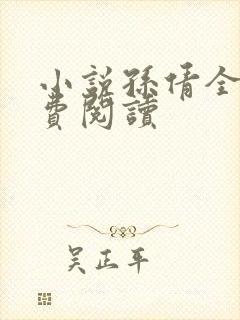 小説孫倩全
費閱讀
吴正平